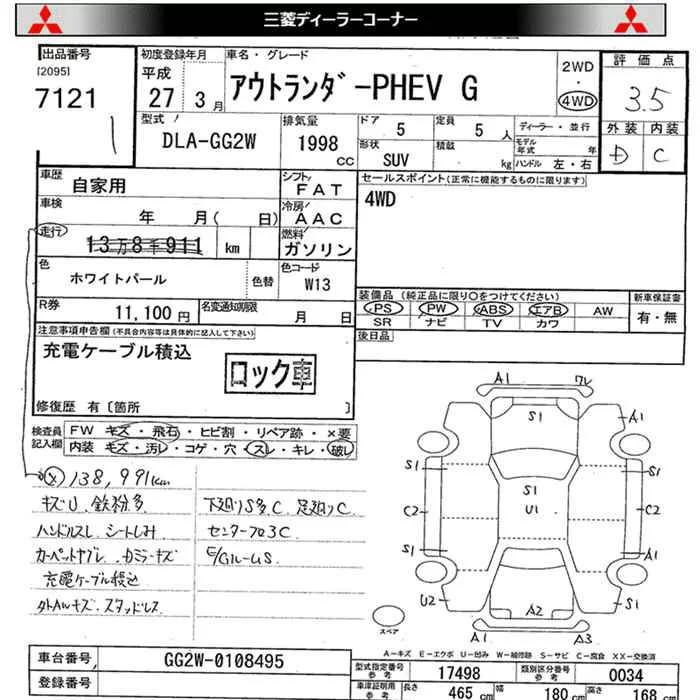 三菱ディーラーコーナー
出品番号
[2095]
7121
初度登録年月
平成
27年 3月
車名・グレード
アウトランダ゛-PHEV G
2WD
・
4WD
評価点
3.5
外装 内装
D C
型式
DLA-GG2W
排気量
1998
CC
ドア 5
定員 5 人
ディーラー・並行
形状
SUV
積載
kg
モデル年式 年
ハンドル 左・右
車歴
自家用
シフト
FAT
セールスポイント(正常に機能するものに限ります)
4WD
車検
年 月( 日)
冷房
AAC
走行
13万8千911 km
燃料
ガソリン
色
ホワイトパール
色替
色コード
W13
R券
11,100円
名変通知期限
月 日
装備品 (純正品に限り○をつけてください)
新車保証書
PS PW ABS エアB AW
有・無
SR ナビ TV カワ
後日品
注意事項申告欄(不具合内容等は具体的に記入して下さい)
充電ケーブル積込
ロック車
修復歴 有〔箇所 〕
検査員記入欄
FW キズ・飛石・ヒビ割・リペア跡・×要
内装 キズ・汚レ・コゲ・穴・スレ・キレ・破レ
138,991km
キズU 鉄粉多
ハンドルスレ シートしみ
カーペットヤブレ カミラーキズ
充電ケーブル積込
外AWキズ・スタッドレス
下廻りS多C 足廻りC
センターフロ3C
A1
ワレ
S1
A1
S1
S1
S1
U1
C2
C2
S1
A1
U2
A2
S1
A1
A3
スペア
A-キズ E-エクボ U-凹み W-補修跡 S-サビ C-腐食 XX-交換済
車台番号
GG2W-0108495
登録番号
型式指定番号
参考
17498
類別区分番号
参考
0034
車庫証明用
参考
長さ
465 cm
幅
180 cm
高さ
168 cm